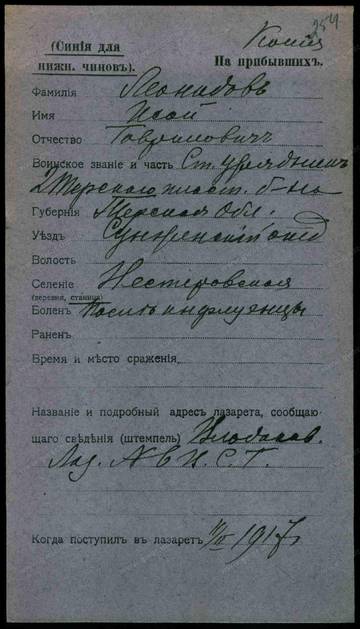 254
(Синія для
нижн. чиновъ).
Копія
На прибывшихъ.
Фамилія Леонидовъ
Имя Исай
Отчество Гавриловичъ
Воинское званіе и часть Ст. урядникъ
2 Терскаго пласт. б-на
Губернія Терская Обл.
Уѣздъ Сунженскій отд
Волость
Селеніе Нестеровская
(деревня, станица)
Боленъ Послѣ инфлуенцы
Раненъ
Время и мѣсто сраженія
Названіе и подробный адресъ лазарета, сообщаю-
щаго свѣдѣнія (штемпель) Влодавов.
Лаз. И. С. Г.
Когда поступилъ въ лазаретъ 1917 г.